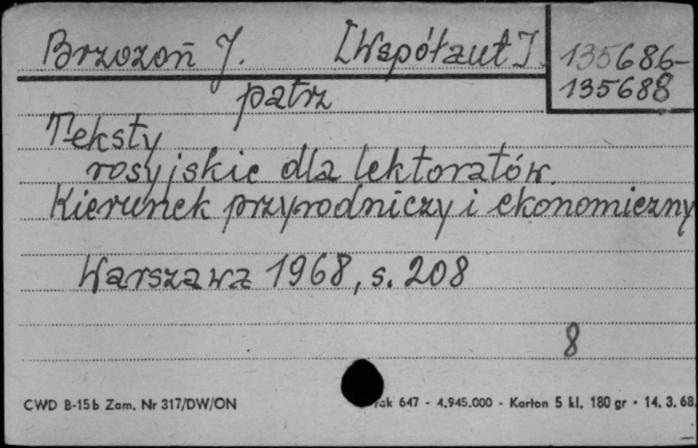 Brzozoń J. [Współaut]. 135686-
135688
patrz
Teksty
rosyjskie dla lektoratów.
Kierunek przyrodniczy i ekonomiczny
Warszawa 1968, s. 208
8
CWD B-15b Zam. Nr 317/DW/ON 647 - 4.945.000 - Karton 5 kl. 180 gr - 14. 3. 68.